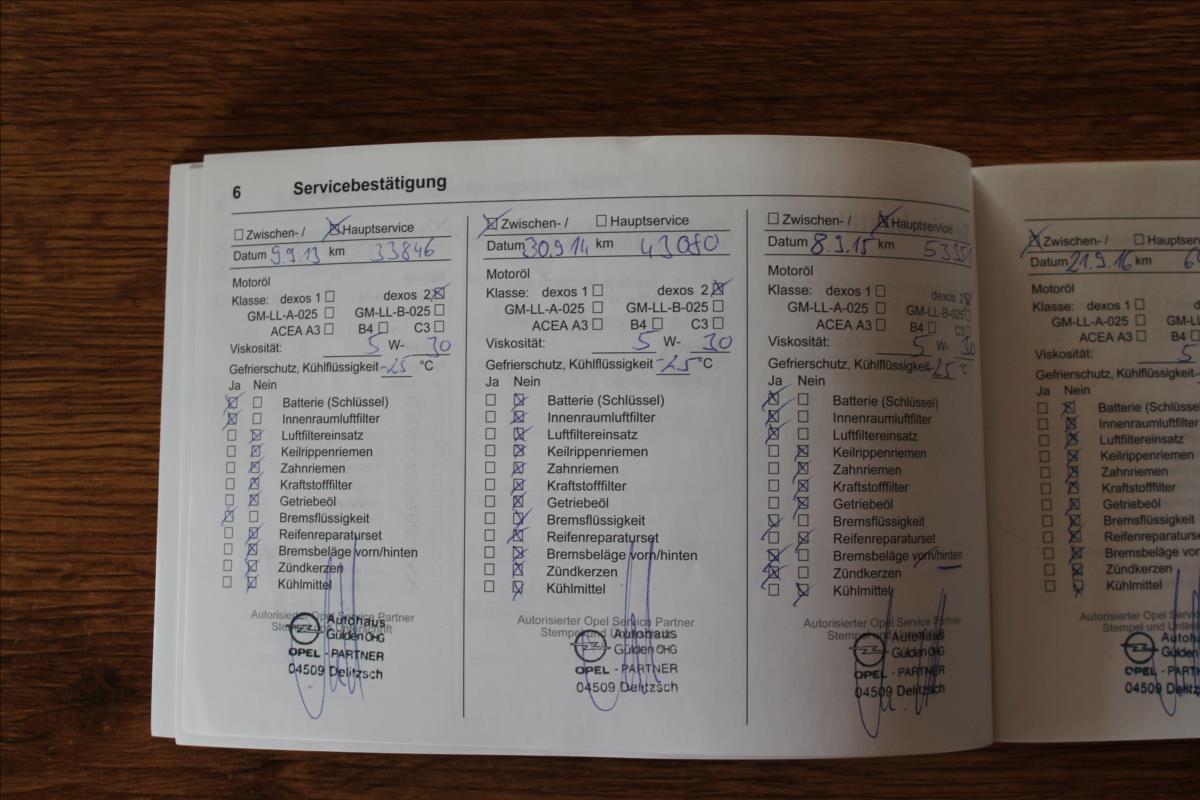 6 Servicebestätigung
Zwischen- / Hauptservice
Datum 9.9.13 km 33846
Motoröl
Klasse: dexos 1 dexos 2
GM-LL-A-025 GM-LL-B-025
ACEA A3 B4 C3
Viskosität: 5 W- 30
Gefrierschutz, Kühlflüssigkeit -25 °C
Ja Nein
Batterie (Schlüssel)
Innenraumluftfilter
Luftfiltereinsatz
Keilrippenriemen
Zahnriemen
Kraftstofffilter
Getriebeöl
Bremsflüssigkeit
Reifenreparaturset
Bremsbeläge vorn/hinten
Zündkerzen
Kühlmittel
Autorisierter Opel Service Partner
Stempel und Unterschrift
Autohaus
Gülden OHG
OPEL - PARTNER
04509 Delitzsch
Zwischen- / Hauptservice
Datum 30.9.14 km 43080
Motoröl
Klasse: dexos 1 dexos 2
GM-LL-A-025 GM-LL-B-025
ACEA A3 B4 C3
Viskosität: 5 W- 30
Gefrierschutz, Kühlflüssigkeit -25 °C
Ja Nein
Batterie (Schlüssel)
Innenraumluftfilter
Luftfiltereinsatz
Keilrippenriemen
Zahnriemen
Kraftstofffilter
Getriebeöl
Bremsflüssigkeit
Reifenreparaturset
Bremsbeläge vorn/hinten
Zündkerzen
Kühlmittel
Autorisierter Opel Service Partner
Stempel und
Autohaus
Gülden OHG
OPEL - PARTNER
04509 Delitzsch
Zwischen- / Hauptservice
Datum 8.9.15 km 53351
Motoröl
Klasse: dexos 1 dexos 2
GM-LL-A-025 GM-LL-B-025
ACEA A3 B4 C3
Viskosität: 5 W- 30
Gefrierschutz, Kühlflüssigkeit -25 °C
Ja Nein
Batterie (Schlüssel)
Innenraumluftfilter
Luftfiltereinsatz
Keilrippenriemen
Zahnriemen
Kraftstofffilter
Getriebeöl
Bremsflüssigkeit
Reifenreparaturset
Bremsbeläge vorn/hinten
Zündkerzen
Kühlmittel
Autorisierter Opel Service Partner
Stempel und
Autohaus
Gülden OHG
OPEL - PARTNER
04509 Delitzsch
Zwischen- / Hauptserv
Datum 21.9.16 km 6
Motoröl
Klasse: dexos 1
GM-LL-A-025 GM-L
ACEA A3 B4
Viskosität: 5
Gefrierschutz, Kühlflüssigkeit
Ja Nein
Batterie (Schlüssel
Innenraumluftfilter
Luftfiltereinsatz
Keilrippenriemen
Zahnriemen
Kraftstofffilter
Getriebeöl
Bremsflüssigkeit
Reifenreparaturset
Bremsbeläge vorn
Zündkerzen
Kühlmittel
Autorisierter Opel Servic
Stempel und Unter
Autohaus
Gülden
OPEL - PART
04509 Delitz